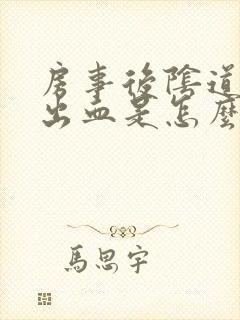 房事後陰道
出血是怎麼
馬思宇